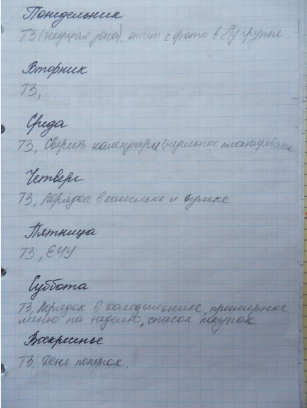 Понедельник
ТЗ (текущая зона), отчёт с фото в ПУ группе
Вторник
ТЗ,
Среда
ТЗ, Сверить календари (недельное планирование
Четверг
ТЗ, Порядок в кошельке и сумке
Пятница
ТЗ, ЕЧУ
Суббота
ТЗ, Порядок в холодильнике, примерное
меню на неделю, список покупок
Воскресенье
ТЗ День покупок.